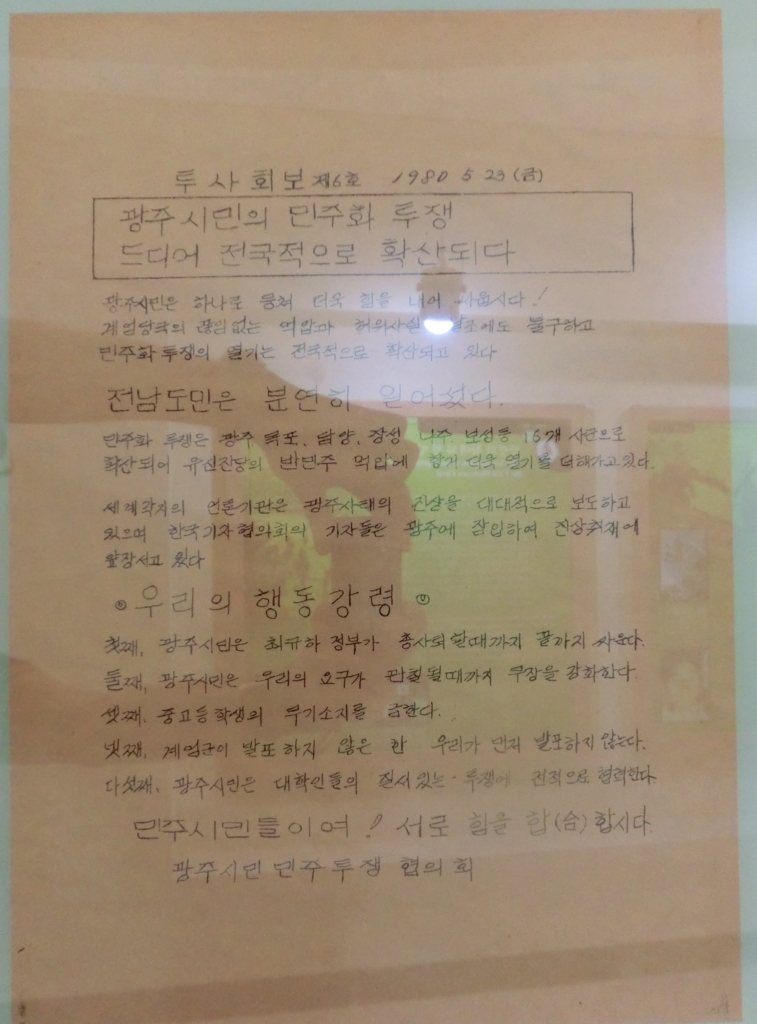 투사회보 제6호 1980 5 23(금)
광주시민의 민주화 투쟁
드디어 전국적으로 확산되다
광주시민은 하나로 뭉쳐 더욱 힘을 내어 싸웁시다!
계엄당국의 끊임없는 억압과 허위사실 날조에도 불구하고
민주화 투쟁의 열기는 전국적으로 확산되고 있다
전남도민은 분연히 일어섰다.
민주화 투쟁은 광주 목포, 담양, 장성 나주 보성등 16개 시군으로
확산되어 유신잔당의 반민주 억압에 항거 더욱 열기를 더해가고 있다.
세계각지의 언론기관은 광주사태의 진상을 대대적으로 보도하고
있으며 한국기자협의회의 기자들은 광주에 잠입하여 진상취재에
앞장서고 있다
우리의 행동강령
첫째, 광주시민은 최규하 정부가 총사퇴할때까지 끝까지 싸운다.
둘째, 광주시민은 우리의 요구가 관철될때까지 무장을 강화한다.
셋째. 중고등학생의 무기소지를 금한다.
넷째, 계엄군이 발포하지 않은 한 우리가 먼저 발포하지 않는다.
다섯째. 광주시민은 대학인들의 질서있는 투쟁에 전적으로 협력한다
민주시민들이여! 서로 힘을 합(合)합시다.
광주시민 민주투쟁 협의회